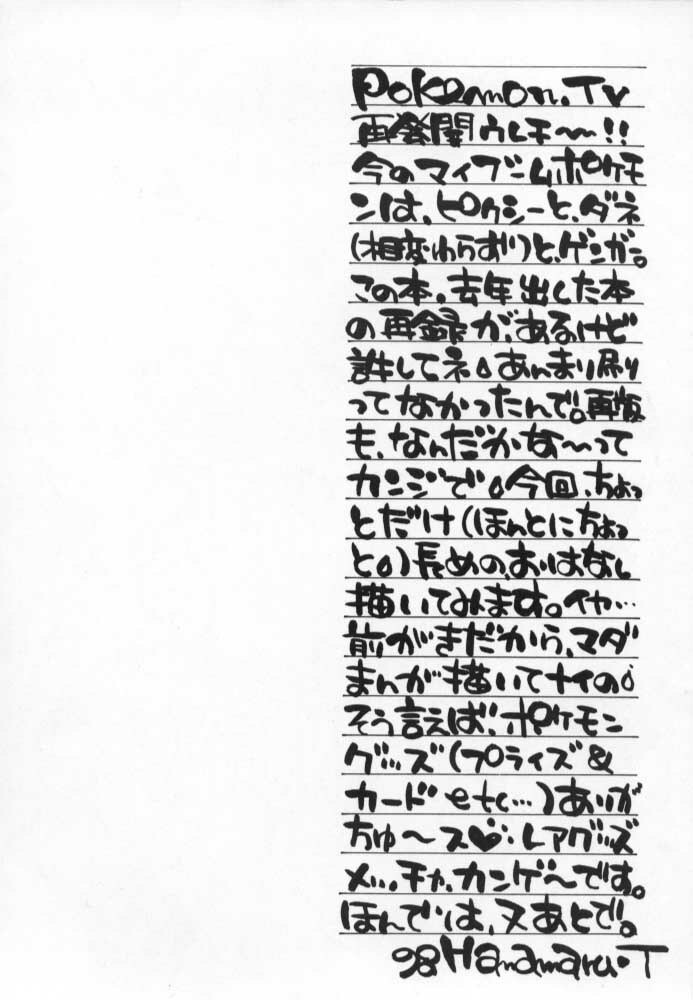 Pokemon.Tv
再発開ウレチ〜〜!!
今のマイブームポケモ
ンは、ピクシーと、ダネ
(相変わらず)と、ゲンガー。
この本、去年出した本
の再録が、あるけど
許してネ。あんまり刷り
ってなかったんで。再版
も、なんだかな〜って
カンジで。今回、ちょっ
とだけ(ほんとにちょっ
と。)長めの、おはなし
描いてみます。イヤ…
前がきだから、マダ
まんが描いてナイの。
そう言えば、ポケモン
グッズ(プライズ&
カード etc…)ありが
ちゅ〜ス♥:レアグッズ
メッ、チャ、カンゲ〜です。
ほんでは、又あとで。
'98 Hanamaru・T